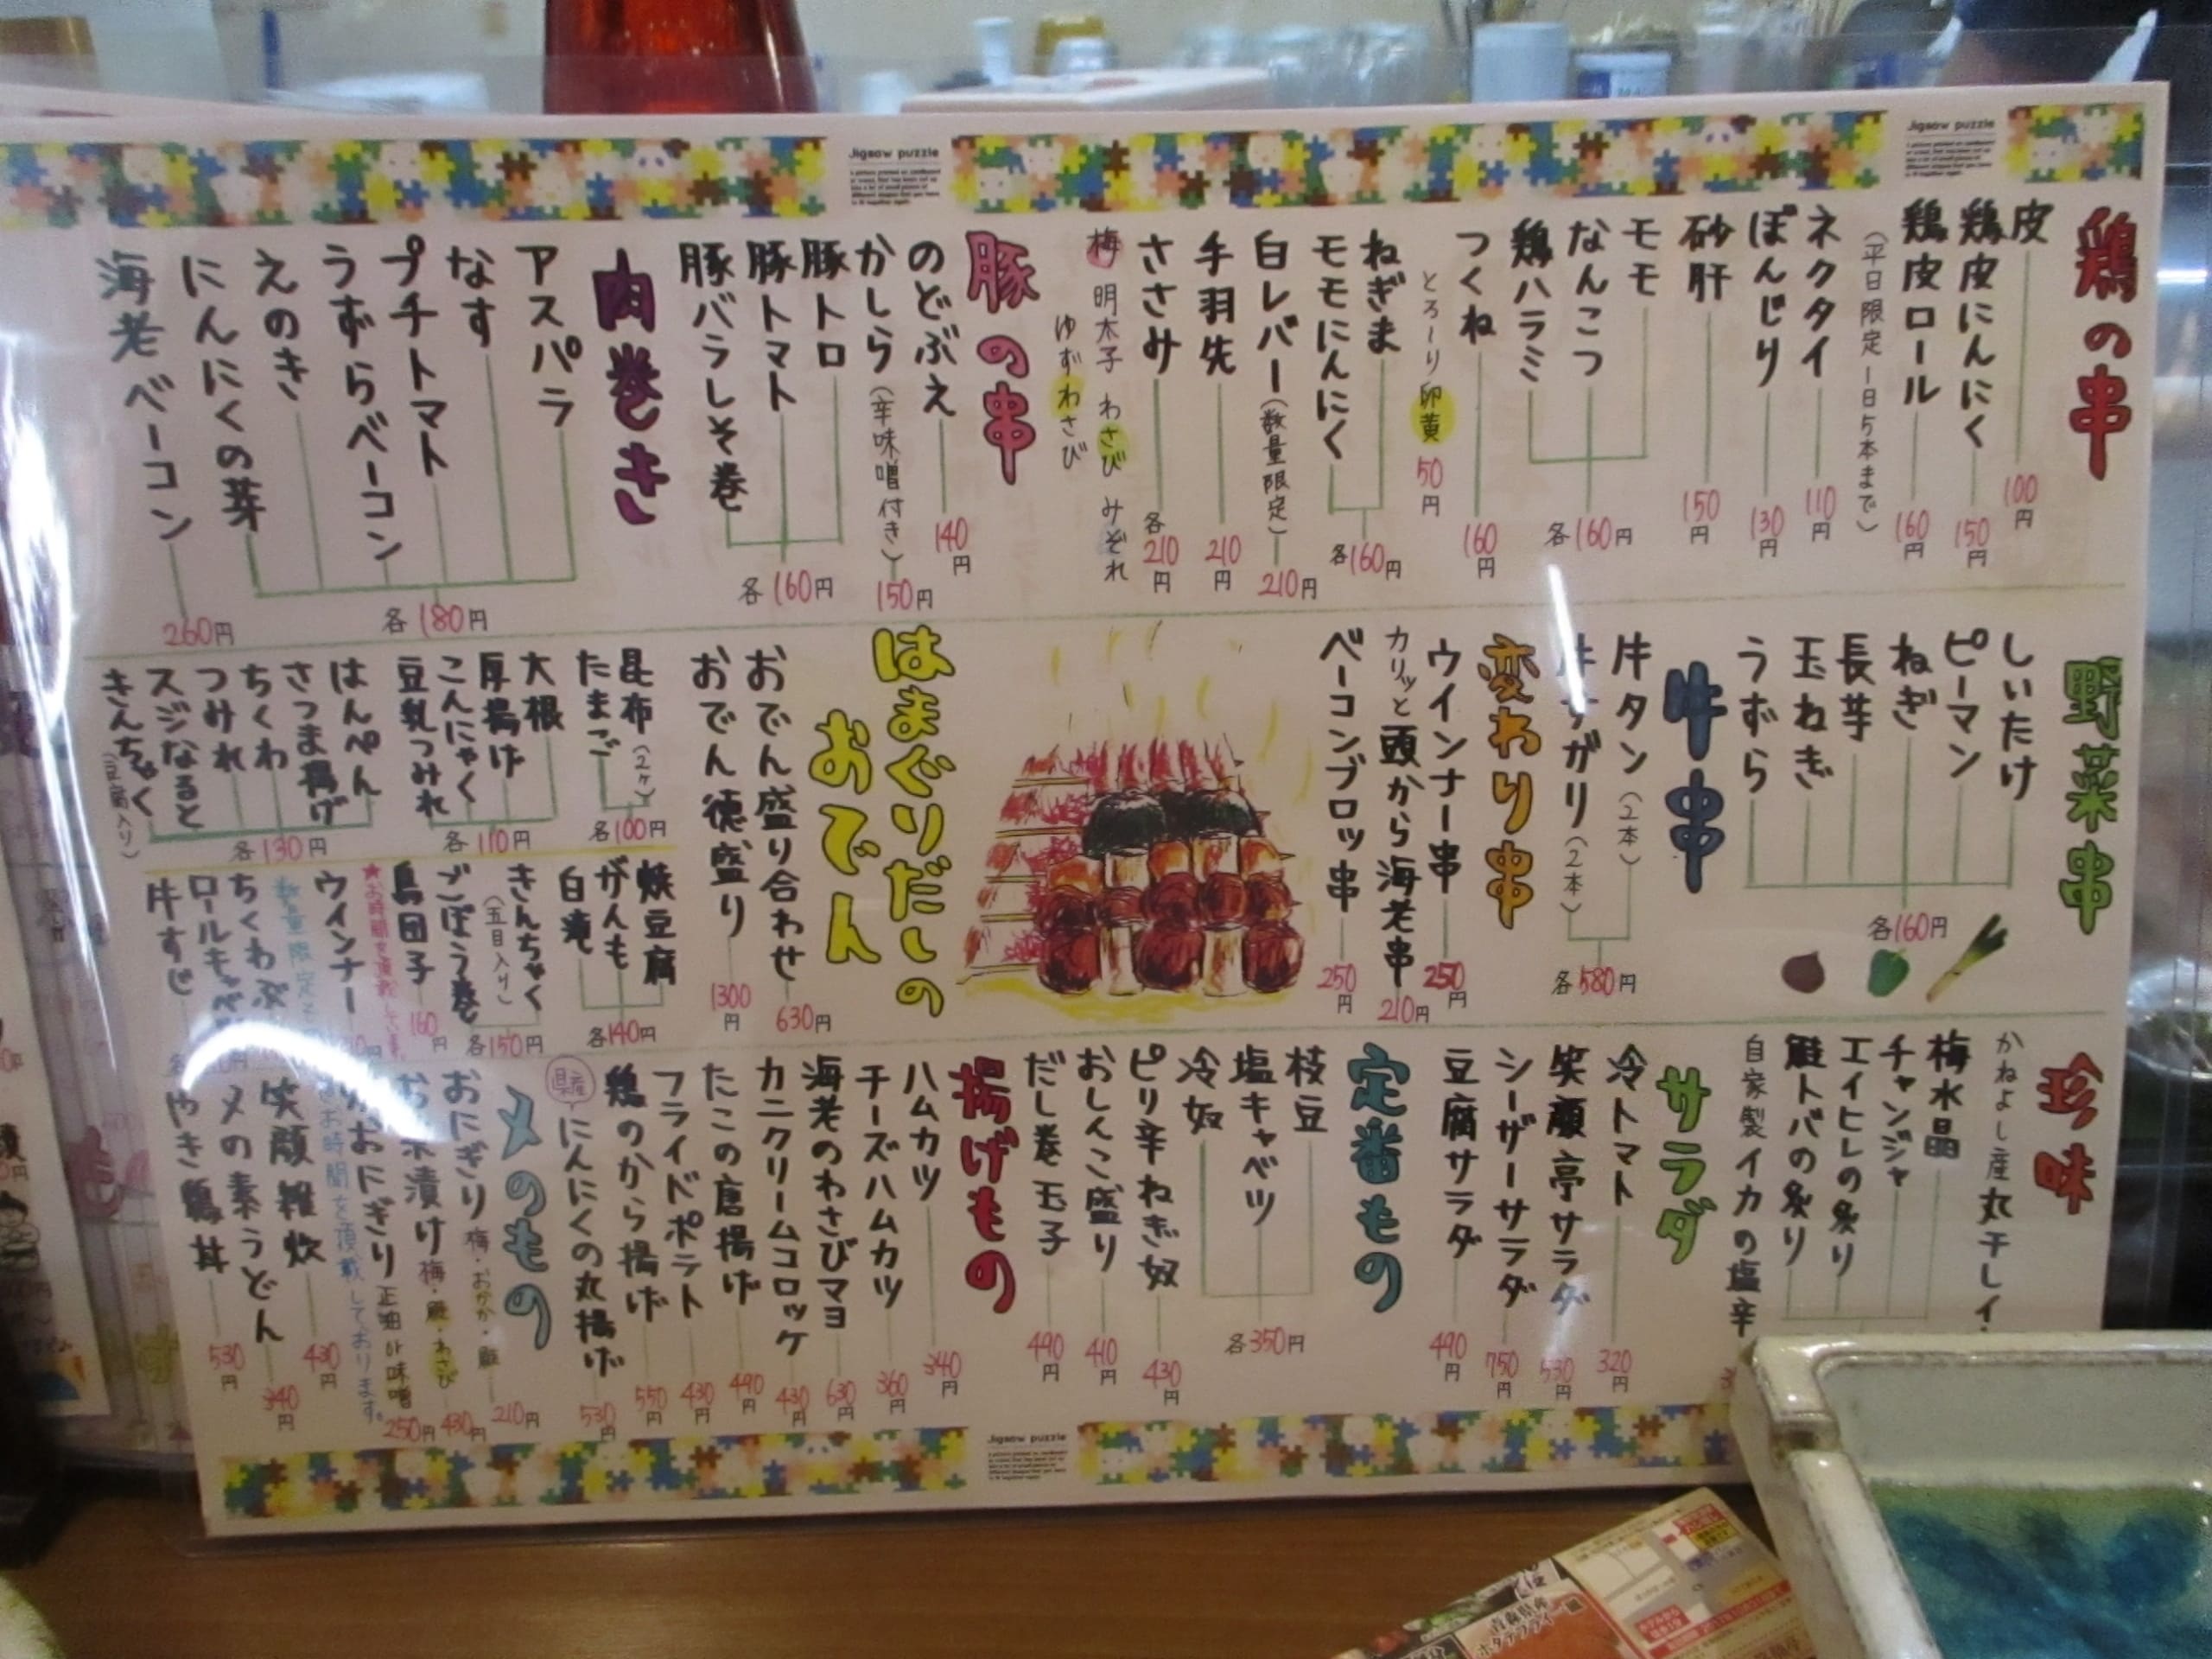 Jigsaw puzzle
Jigsaw puzzle
鶏の串
皮 100円
鶏皮にんにく 150円
鶏皮ロール 160円
(平日限定一日5本まで)
ネクタイ 110円
ぼんじり 130円
砂肝 150円
モモ
なんこつ
鶏ハラミ
各160円
つくね 160円
とろ〜り卵黄 50円
ねぎま
モモにんにく
各160円
白レバー(数量限定) 210円
手羽先 210円
ささみ 各210円
梅 明太子 わさび みぞれ
ゆずわさび
豚の串
のどぶえ 140円
かしら(辛味噌付き) 150円
豚トロ
豚トマト
豚バラしそ巻
各160円
肉巻き
アスパラ
なす
プチトマト
うずらベーコン
えのき
にんにくの芽
各180円
海老ベーコン 260円
野菜串
しいたけ
ピーマン
ねぎ
長芋
玉ねぎ
うずら
各160円
牛串
牛タン(2本)
サガリ(2本)
各580円
変わり串
ウインナー串 250円
カリッと頭から海老串 210円
ベーコンブロック串 250円
はまぐりだしの
おでん
おでん盛り合わせ 630円
おでん徳盛り 1300円
昆布(2ヶ)
たまご
各100円
大根
厚揚げ
こんにゃく
豆乳つみれ
各110円
はんぺん
さつま揚げ
ちくわ
つみれ
スジなると
きんちゃく(豆腐入り)
各130円
焼豆腐
がんも
白滝
各140円
きんちゃく(五目入り)
ごぼう巻
各150円
鳥団子 160円
★お時間を頂戴
ウインナー
数量限定
ちくわぶ
ロールキャベ
牛すじ
珍味
かねよし産丸干しイ
梅水晶
チャンジャ
エイヒレの炙り
鮭トバの炙り
自家製イカの塩辛
サラダ
冷トマト 320円
笑顔亭サラダ 530円
シーザーサラダ 750円
豆腐サラダ 490円
定番もの
枝豆
塩キャベツ
冷奴
各350円
ピリ辛ねぎ奴 430円
おしんこ盛り 410円
だし巻玉子 490円
揚げもの
ハムカツ 340円
チーズハムカツ 360円
海老のわさびマヨ 630円
カニクリームコロッケ 430円
たこの唐揚げ 490円
フライドポテト 430円
鶏のから揚げ 550円
県産にんにくの丸揚げ 530円
〆のもの
おにぎり 梅・おかか・鮭 210円
漬け 梅・鮭・わさび 430円
おにぎり 正油or味噌 250円
お時間を頂戴しております。
笑顔雑炊 430円
〆の素うどん 340円
やき鶏丼 530円